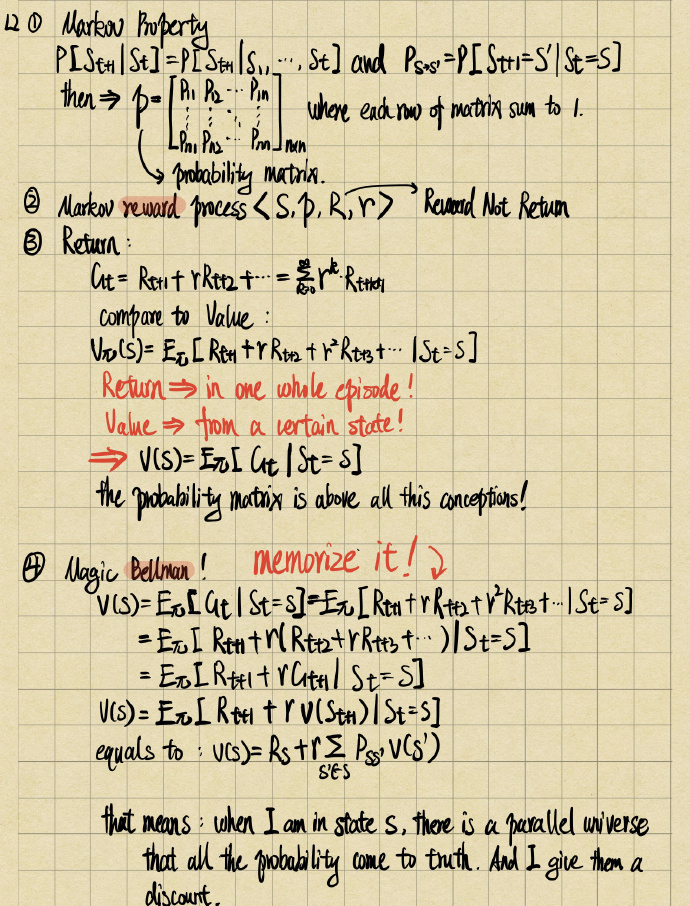 L2 ① Markov Property
P[St+1|St]=P[St+1|S1,…,St] and Ps→s'=P[St+1=S'|St=S]
then ⇒ p=[P11 P12 … P1n
⋮ ⋮ ⋱ ⋮
Pn1 Pn2 … Pnn]nxn where each row of matrix sum to 1.
probability matrix.
② Markov reward process <S,p,R,r> → Reward Not Return
③ Return:
Gt= Rt+1+ rRt+2+… = ∞∑k=0 r^k·Rt+k+1
compare to Value:
Vπ(s)= Eπ[Rt+1+rRt+2+r²Rt+3+…|St=s]
Return ⇒ in one whole episode!
Value ⇒ from a certain state!
⇒ V(S)=Eπ[Gt|St=s]
the probability matrix is above all this conceptions!
④ Magic Bellman! memorize it!
V(S)=Eπ[Gt|St=s]=Eπ[Rt+1+rRt+2+r²Rt+3+…|St=S]
=Eπ[Rt+1+r(Rt+2+rRt+3+…)|St=S]
=Eπ[Rt+1+rGt+1|St=S]
V(s)=Eπ[Rt+1+rV(St+1)|St=s]
equals to: V(s)=Rs+r∑s'∈S Pss' V(s')
that means: when I am in state s, there is a parallel universe
that all the probability come to truth. And I give them a
discount.